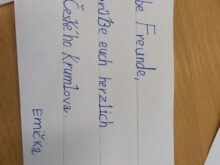 be Freunde,
rüße euch herzlich
Českého Krumlova.
Emička